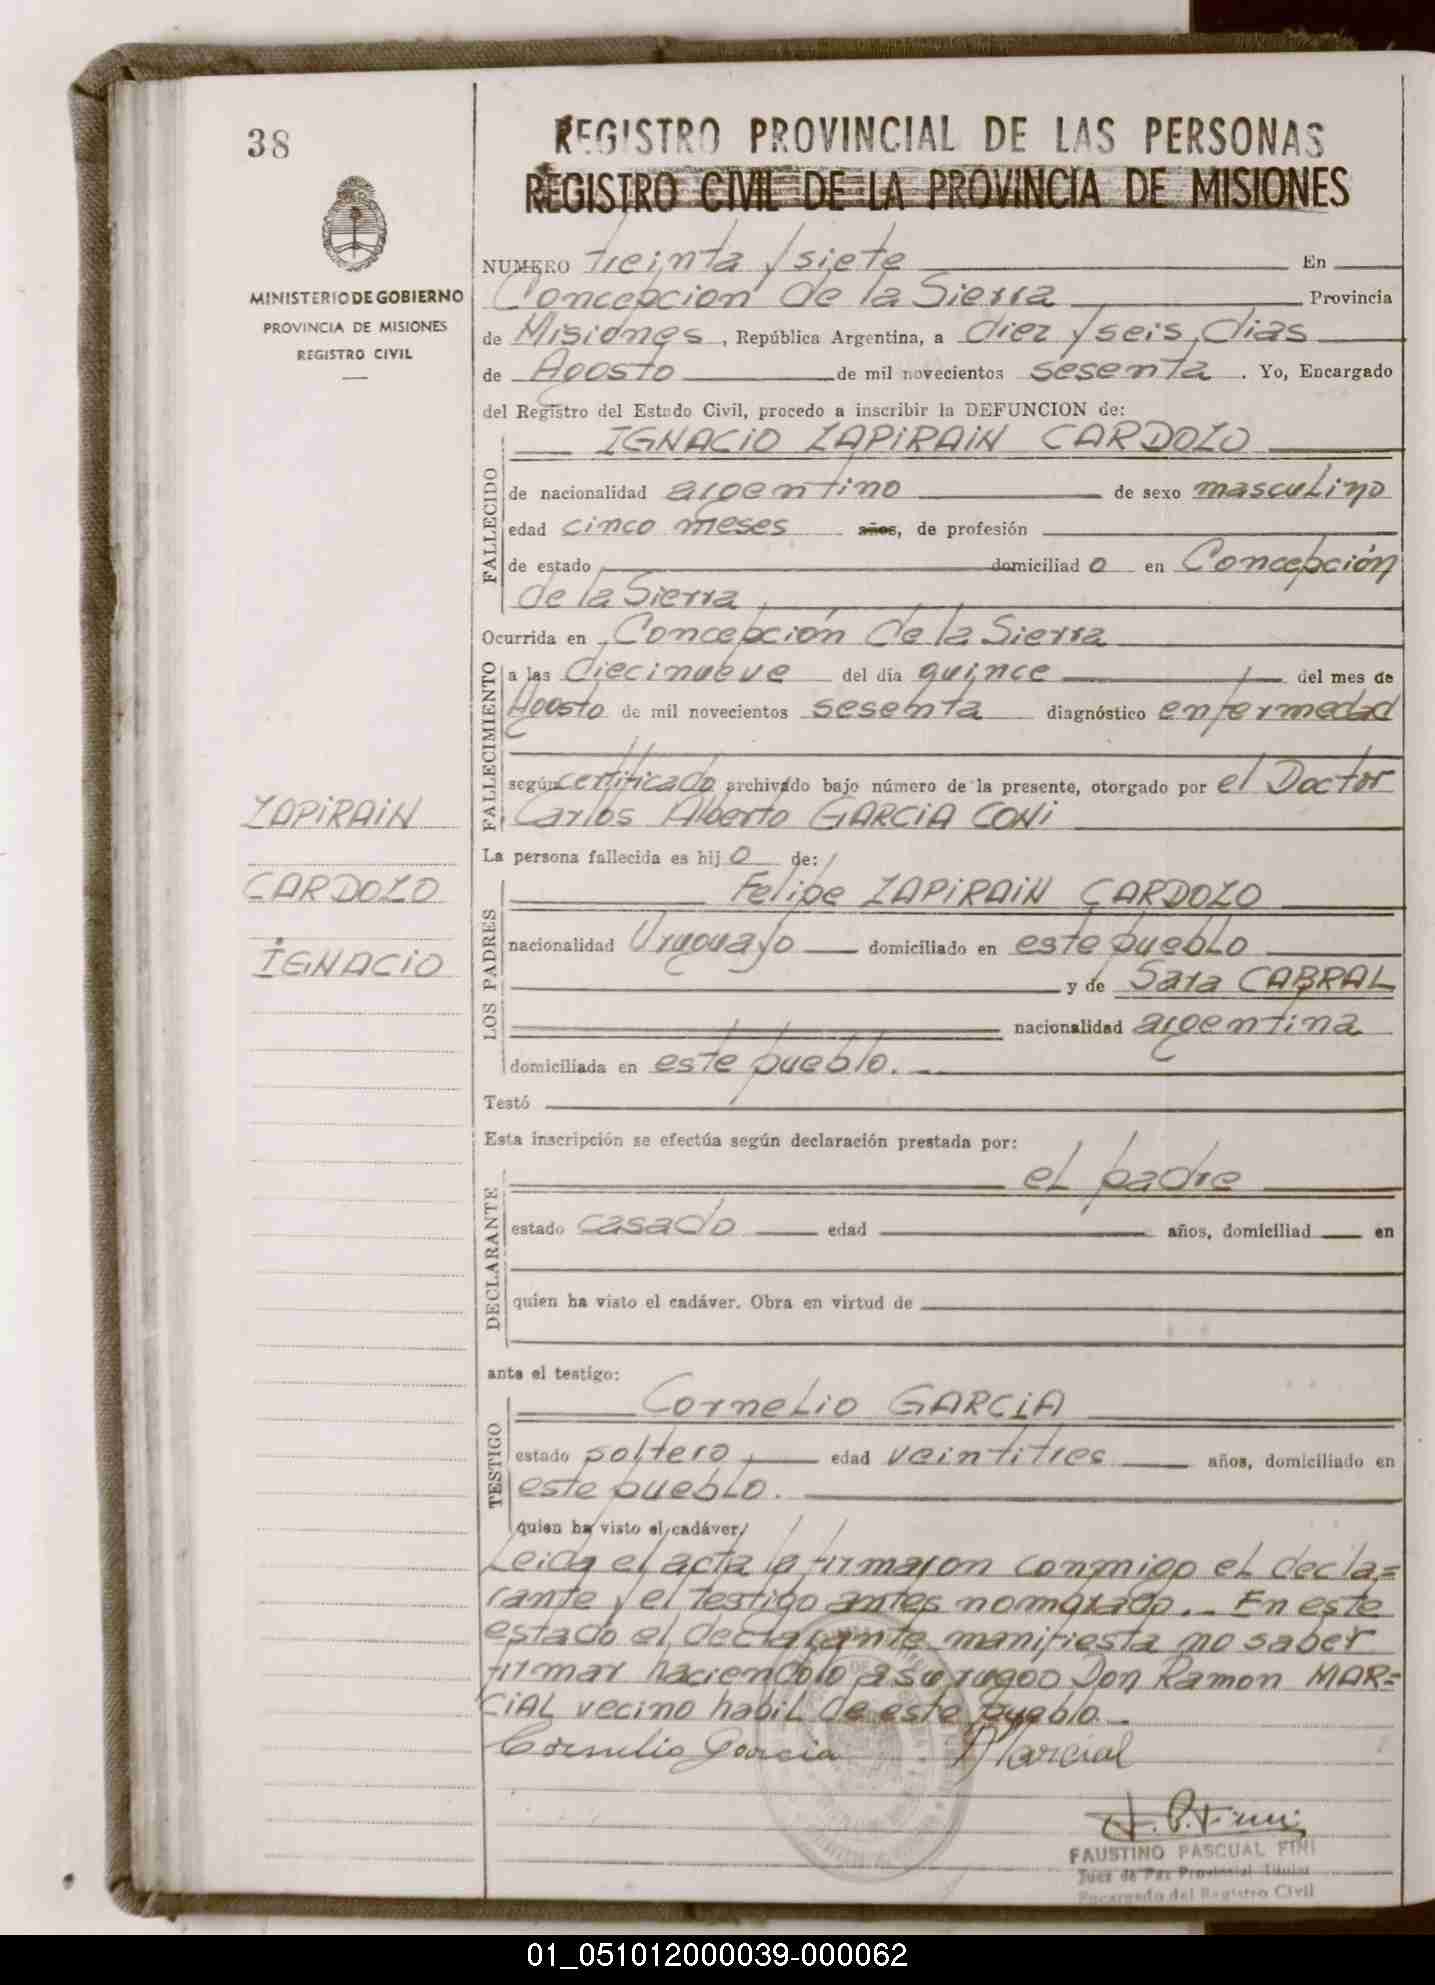 38
REGISTRO PROVINCIAL DE LAS PERSONAS
REGISTRO CIVIL DE LA PROVINCIA DE MISIONES
MINISTERIO DE GOBIERNO
PROVINCIA DE MISIONES
REGISTRO CIVIL
NUMERO treinta y siete En
Concepcion de la Sierra Provincia
de Misiones, República Argentina, a diez y seis dias
de Agosto de mil novecientos sesenta. Yo, Encargado
del Registro del Estado Civil, procedo a inscribir la DEFUNCION de:
IGNACIO ZAPIRAIN CARDOZO
FALLECIDO
de nacionalidad argentino de sexo masculino
edad cinco meses años, de profesión
de estado domiciliado en Concepción
de la Sierra
Ocurrida en Concepción de la Sierra
FALLECIMIENTO
a las diecinueve del día quince del mes de
Agosto de mil novecientos sesenta diagnóstico enfermedad
según certificado archivado bajo número de la presente, otorgado por el Doctor
Carlos Alberto GARCIA CONI
ZAPIRAIN
CARDOZO
IGNACIO
La persona fallecida es hijo de:
LOS PADRES
Felipe ZAPIRAIN CARDOZO
nacionalidad Uruguayo domiciliado en este pueblo
y de Sara CABRAL
nacionalidad argentina
domiciliada en este pueblo.
Testó
Esta inscripción se efectúa según declaración prestada por:
DECLARANTE
el padre
estado casado edad años, domiciliad en
quien ha visto el cadáver. Obra en virtud de
ante el testigo:
TESTIGO
Cornelio GARCIA
estado soltero, edad veintitres años, domiciliado en
este pueblo.
quien ha visto el cadáver/
Leida el acta la firmaron conmigo el decla=
rante y el testigo antes nombrado. En este
estado el declarante manifiesta no saber
firmar haciendolo a su ruego Don Ramon MAR=
CIAL vecino habil de este pueblo.
Cornelio Garcia Marcial
FAUSTINO PASCUAL FINI
Juez de Paz Provincial Titular
Encargado del Registro Civil
01_051012000039-000062